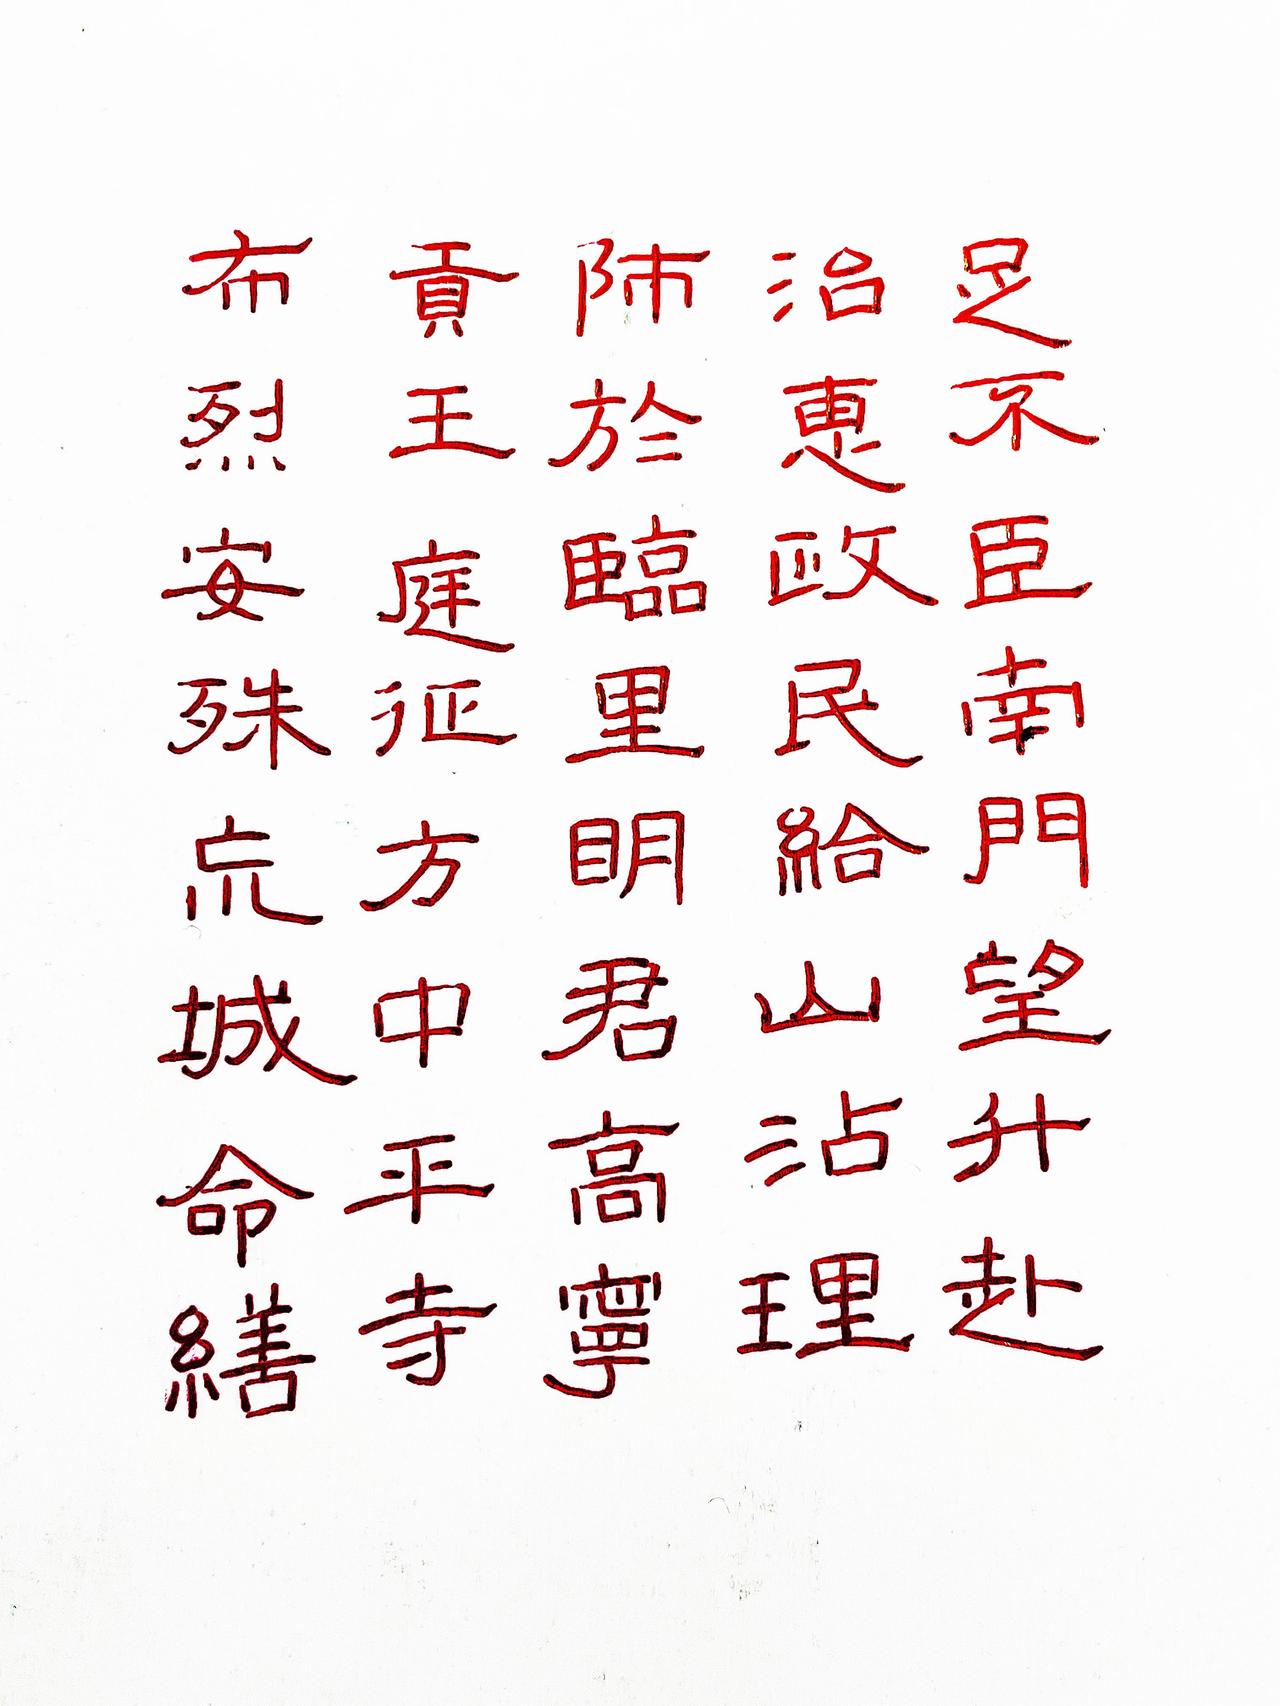 足不臣南門望升赴
治惠政民給山沾理
陟於臨里明君高寧
貢王庭征方中平寺
布烈安殊㐬城命繕